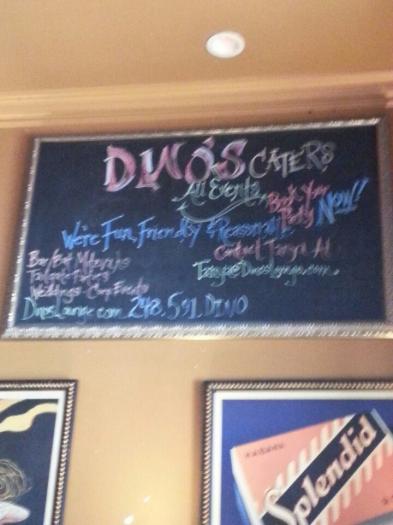 DINO'S CATERS
All Events
Book Your
Party NOW!!
We're Fun, Friendly & Reasonable
Contact Tanya At
Tanya@DinosLounge.com
Bar/Bat Mitzvahs
Tailgate Parties
Weddings Corp Events
DinosLounge.com 248.591.DINO
Splendid